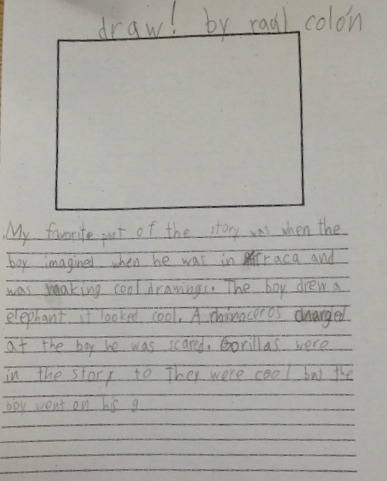 draw! by raúl colón
My favorite part of the story was when the
boy imagined when he was in Afraca and
was making cool drawings. The boy drew a
elephant it looked cool. A rhinoceros charged
at the boy he was scared. Gorillas were
in the story to They were cool but the
boy went on his g